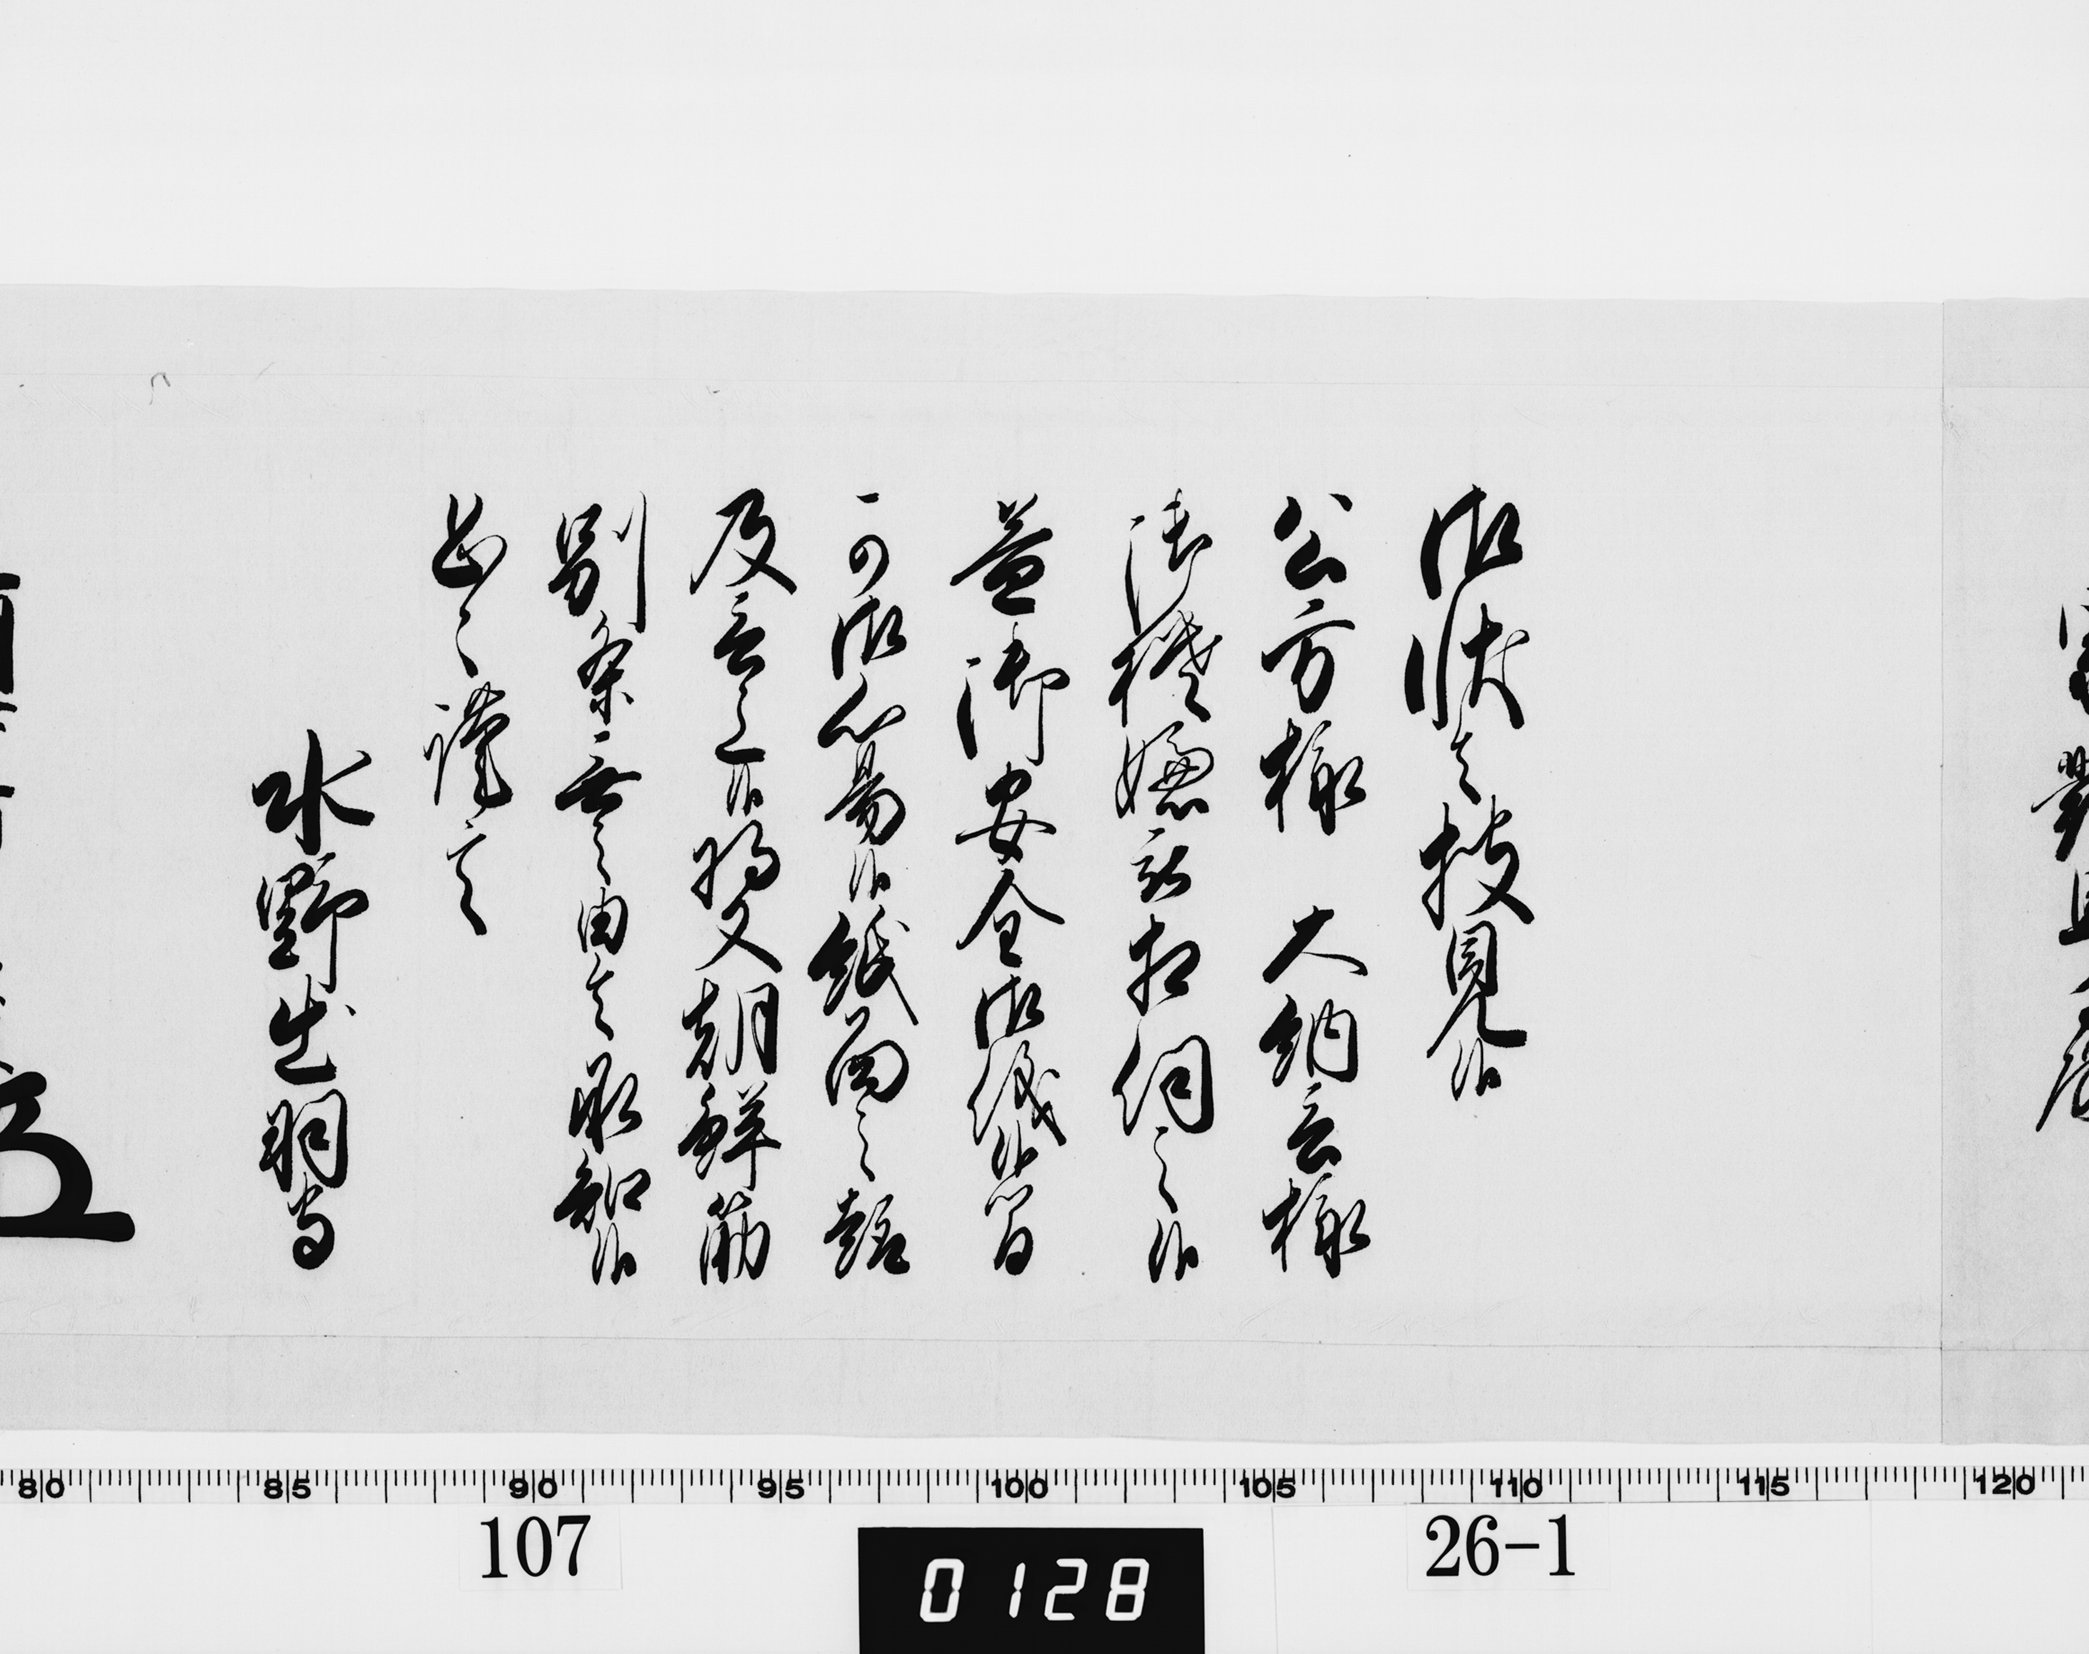 御状令披見候
公方様 大納言様
御機嫌被相伺之候
益御安全御儀候間
可御心易候紙面之趣
及言上候将又朝鮮筋
別条無之由令承知候
恐々謹言
水野出羽守
80 85 90 95 100 105 110 115 120
107
26-1
0128